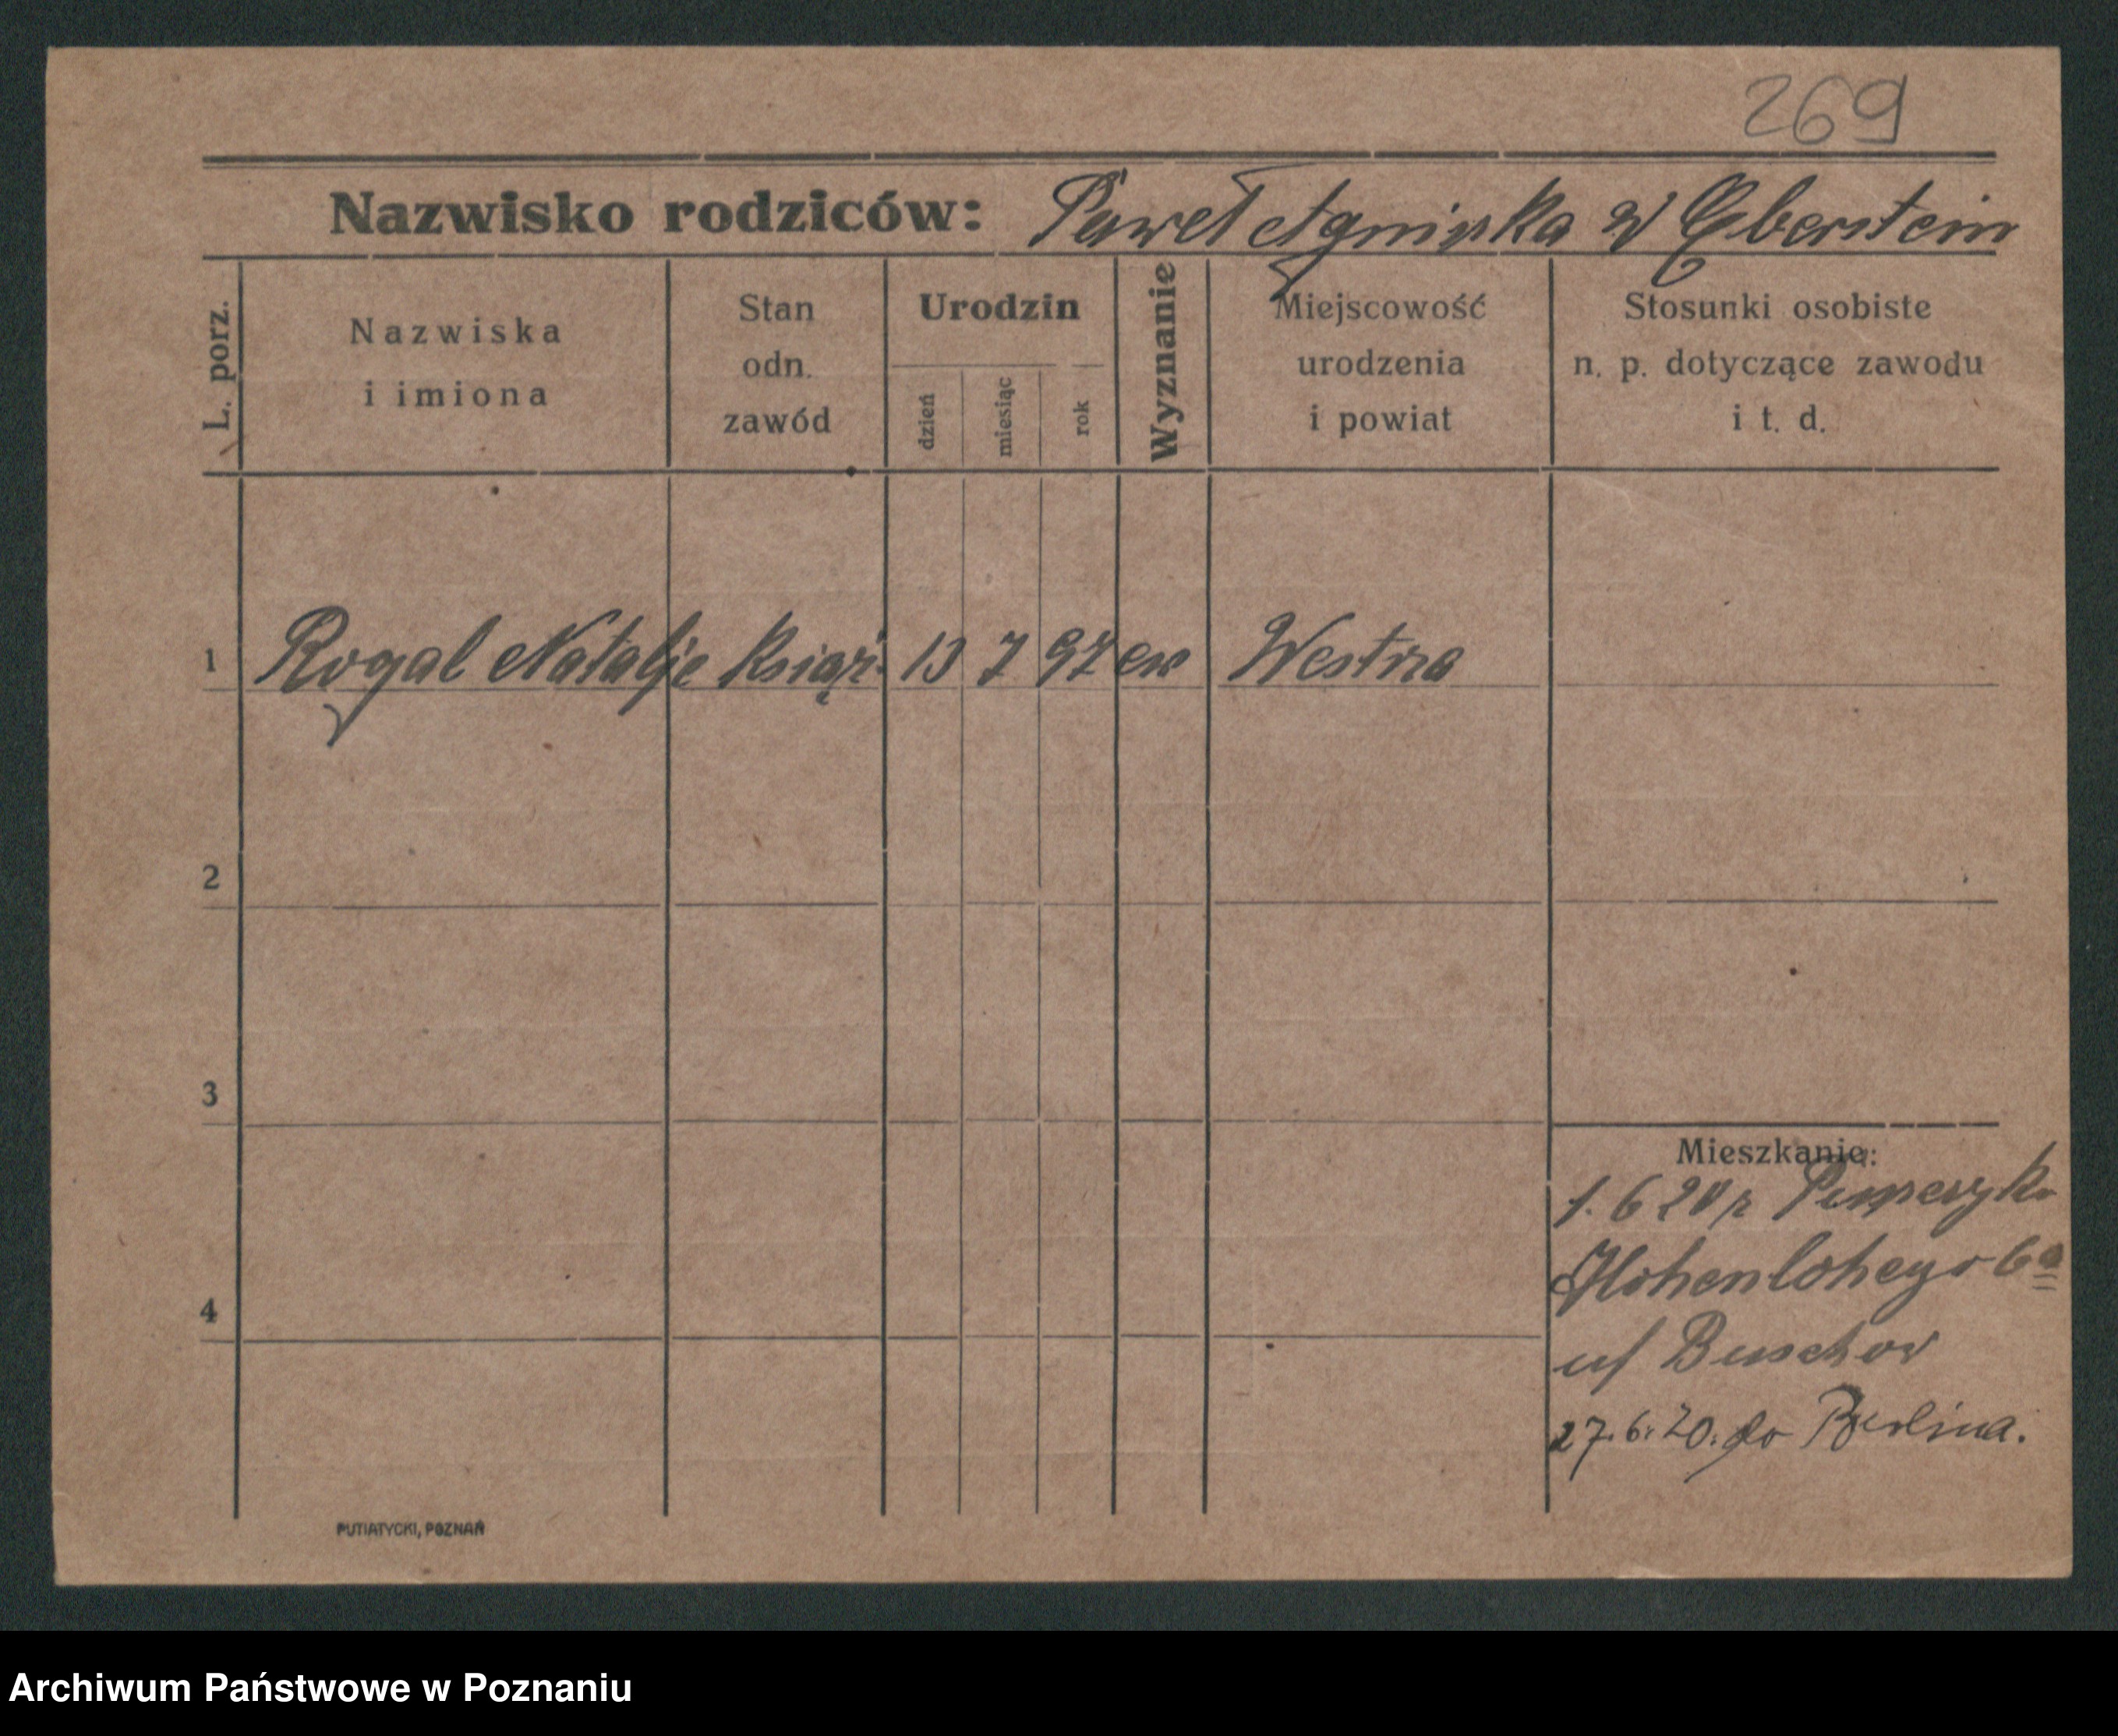 269
Nazwisko rodziców: Paweł Agnieszka z Eberstein
L. porz.
Nazwiska
i imiona
Stan
odn.
zawód
Urodzin
dzień
miesiąc
rok
Wyznanie
Miejscowość
urodzenia
i powiat
Stosunki osobiste
n. p. dotyczące zawodu
i t. d.
1 Rogal Natalje Książ. 13 7 97 ew Westrza
2
3
4
Mieszkanie:
1. 6 20 r
Hohenlohego 6a
u/ Buschow
27. 6. 20. do Berlina.
PUTIATYCKI, POZNAŃ
Archiwum Państwowe w Poznaniu